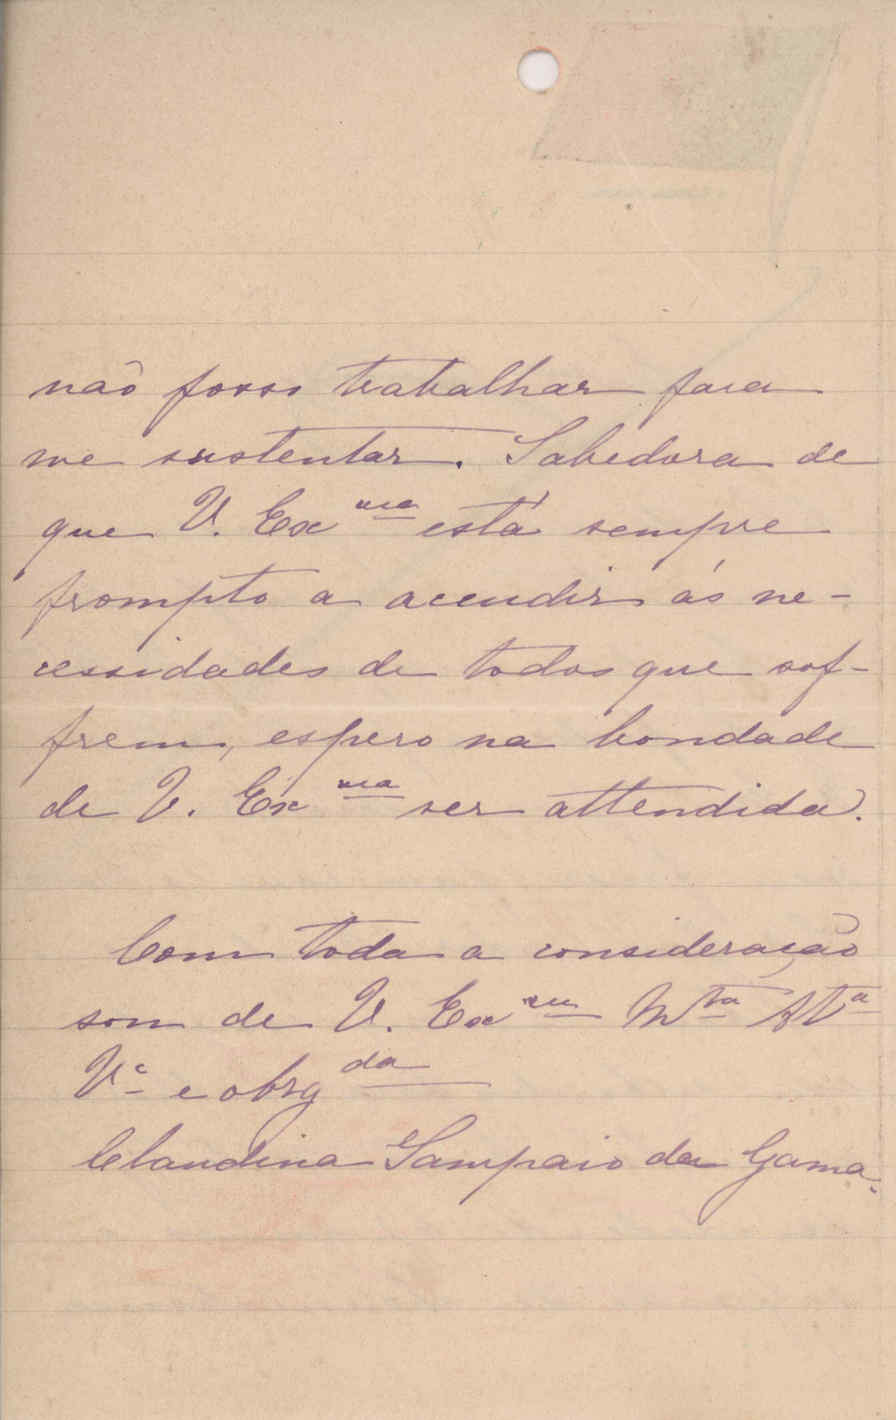 não posso trabalhar para
me sustentar. Sabedora de
que V. Ex ma está sempre
prompto a accudir ás ne-
cessidades de todos que sof-
frem, espero na bondade
de V. Ex ma ser attendida.
Com toda a consideração
sou de V. Ex ma Mta Atta
Va e obrg da
Claudina Sampaio da Gama.